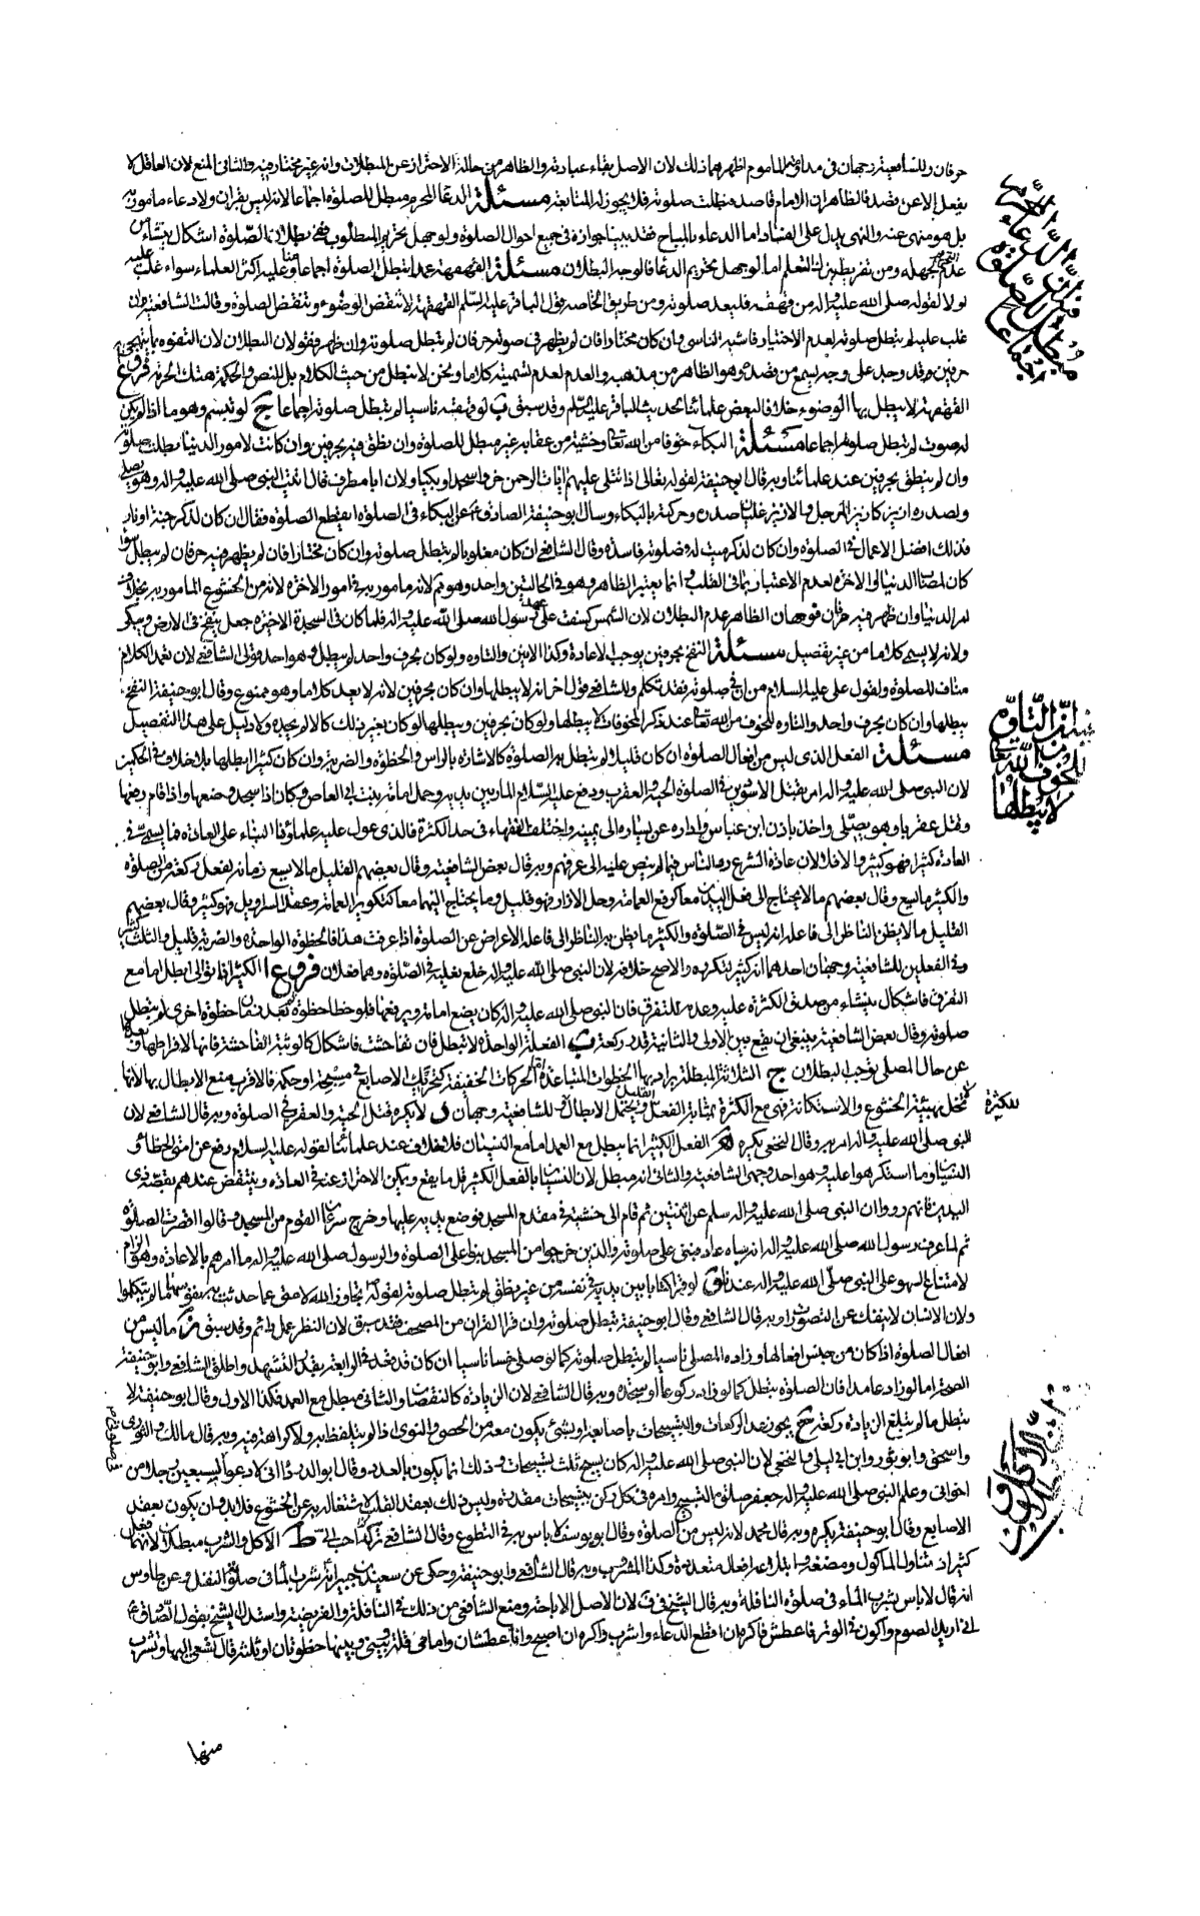 حرفان وللشافعية وجهان في مداومة المأموم اظهرهما ذلك لان الاصل بقاء عبادته والظاهر من حاله الاحتراز عن المبطلات وانه غير مختار فيه والثاني المنع لان العاقل لا
يفعل الا عن قصد فالظاهر ان الامام قاصد فبطلت صلوته فلا يجوز له المتابعة مسئلة الدعاء المحرم مبطل للصلوة اجماعا لانه ليس بقران ولا دعاء مأمور به
بل هو منهى عنه والنهى يدل على الفساد اما الدعاء بالمباح فقد بينا جوازه في جميع احوال الصلوة ولو جهل تحريم المطلوب ففي بطلان الصلوة اشكال ينشاء من
عدم التحريم لجهله ومن تفريطه بترك التعلم اما لو جهل تحريم الدعاء فالوجه البطلان مسئلة القهقهة عمدا تبطل الصلوة اجماعا منا وعليه اكثر العلماء سواء غلب عليه
لو لا لقوله صلى الله عليه واله من قهقه فليعد صلوته ومن طريق الخاصة قول الباقر عليه السلم القهقهة لا تنقض الوضوء وتنقض الصلوة وقالت الشافعية ان
غلب عليه لم تبطل صلوته لعدم الاختيار فاشبه الناسي وان كان مختارا فان لم يظهر في صوته حرفان لم تبطل صلوته وان ظهر فقولان البطلان لان التفوه بما يتهجى
حرفين قد وجد على وجه يسمع من بعضد وهو الظاهر من مذهبه والعدم لعدم تسميته كلاما ونحن لا نبطل من حيث الكلام بل للنص والحكمة هتك الحرمة فروع ا
القهقهة لا يبطل بها الوضوء خلافا لبعض علمائنا لحديث الباقر عليه السلم وقد سبق ب لو قهقه ناسيا لم تبطل صلوته اجماعا ج لو تبسم وهو ما اذا لم يكن
له صوت لم تبطل صلوته اجماعا مسئلة البكاء خوفا من الله تعالى وخشية من عقابه غير مبطل للصلوة وان نطق فيه بحرفين وان كانت لامور الدنيا بطلت صلوته
وان لم ينطق بحرفين عند علمائنا وبه قال ابو حنيفة لقوله تعالى اذا تتلى عليهم ايات الرحمن خروا سجدا وبكيا ولان ابا مطرف قال اتيت النبي صلى الله عليه واله وهو يصلى
ولصدره ازيز كازيز المرجل والازيز غليان صدره وحركته بالبكاء وسال ابو حنيفة الصادق ع عن البكاء في الصلوة ايقطع الصلوة فقال ان كان لذكر جنة او نار
فذلك افضل الاعمال في الصلوة وان كان لذكر ميت له فصلوته فاسدة وقال الشافعي ان كان مغلوبا لم تبطل صلوته وان كان مختارا فان لم يظهر فيه حرفان لم يبطل سواء
كان لمصاب الدنيا او الاخرة لعدم الاعتبار بما في القلب انما يعتبر الظاهر وهو في الحالتين واحد وهو لانه مامور به في امور الاخرة لانه من الخشوع المامور به بخلاف
امر الدنيا وان ظهر فيه حرفان فوجهان الظاهر عدم البطلان لان الشمس كسفت على عهد رسول الله صلى الله عليه واله فلما كان في السجدة الاخيرة جعل ينفخ في الارض ويبكي
ولانه لا يسمى كلاما من غير تفصيل مسئلة النفخ بحرفين يوجب الاعادة وكذا الانين والتاوه ولو كان بحرف واحد لم يبطل وهو احد قولى الشافعي لان تعمد الكلام
مناف للصلوة ولقول علي عليه السلام من ان في صلوته فقد تكلم وللشافعي قول اخر انه لا يبطلها وان كان بحرفين لانه لا يعد كلاما وهو ممنوع وقال ابو حنيفة النفخ
يبطلها وان كان بحرف واحد والتاوه للخوف من الله تعالى عند ذكر المخوفات لا يبطلها ولو كان بحرفين ويبطلها لو كان بغير ذلك كالالم يجده ولا دليل على هذا التفصيل
مسئلة الفعل الذى ليس من افعال الصلوة ان كان قليلا لم تبطل به الصلوة كالاشارة بالراس والخطوة والضربة وان كان كثيرا ابطلها بلا خلاف في الحكمين
لان النبي صلى الله عليه واله امر بقتل الاسودين في الصلوة الحية والعقرب ودفع عليه السلام المار بين يديه وحمل امامة بنت ابي العاص فكان اذا سجد وضعها واذا قام رفعها
وقتل عقربا وهو يصلى واخذ باذن ابن عباس واداره عن يساره الى يمينه واختلف الفقهاء في حد الكثرة فالذى عول عليه علماؤنا البناء على العادة فما يسمى في
العادة كثيرا فهو كثير والا فلا لان عادة الشرع رد الناس فيما لم ينص عليه الى عرفهم وبه قال بعض الشافعية وقال بعضهم القليل ما لا يسع زمانه لفعل ركعة من الصلوة
والكثير ما يسع وقال بعضهم ما لا يحتاج الى فعل اليدين معا كرفع العمامة وحل الازار فهو قليل وما يحتاج اليهما معا كتكوير العمامة وعقد السراويل فهو كثير وقال بعضهم
القليل ما لا يظن الناظر الى فاعله انه ليس في الصلوة والكثير ما يظن به الناظر الى فاعله الاعراض عن الصلوة اذا عرفت هذا فالخطوة الواحدة والضربة قليل والثلث كثير
وفي الفعلين للشافعية وجهان احدهما انه كثير لتكرره والاصح خلافه لان النبي صلى الله عليه واله خلع نعليه في الصلوة وهما فعلان فروع ا الكثير اذا توالى ابطل اما مع
التفرق فاشكال ينشاء من صدق الكثرة عليه وعدمه للتفرق فان النبي صلى الله عليه واله كان يضع امامة ويرفعها فلو خطا خطوة ثم بعد زمان خطوة اخرى لم تبطل
صلوته وقال بعض الشافعية ينبغي ان يقع بين الاولى والثانية قدر ركعة ب الفعلة الواحدة لا تبطل فان تفاحشت فاشكال كالوثبة الفاحشة فانها لافراطها وبعدها
عن حال المصلى يوجب البطلان ج الثلاثة المبطلة يراد بها الخطوات المتباعدة اما الحركات الخفيفة كتحريك الاصابع في مسبحة او حكة فالاقرب منع الابطال بها لانها
لا تخل بهيئة الخشوع والاستكانة فهى مع الكثرة بمثابة الفعل القليل ويحتمل الابطال للكثرة وللشافعية وجهان د لا يكره قتل الحية والعقرب في الصلوة وبه قال الشافعي لان
النبي صلى الله عليه واله امر به وقال النخعي يكره ه الفعل الكثير انما يبطل مع العمد اما مع النسيان فلا خلاف عند علمائنا لقوله عليه السلام رفع عن امتى الخطا و
النسيان وما استكرهوا عليه وهو احد وجهى الشافعية والثاني انه مبطل لان النسيان بالفعل الكثير قل ما يقع ويمكن الاحتراز عنه في العادة وينتقض عندهم بقصة ذى
اليدين فانهم رووا ان النبي صلى الله عليه واله سلم عن اثنتين ثم قام الى خشبة في مقدم المسجد فوضع يديه عليها وخرج سرعان القوم من المسجد وقالوا اقصرت الصلوة
ثم لما عرف رسول الله صلى الله عليه واله انه ساه عاد فبنى على صلوته والذين خرجوا من المسجد بنوا على الصلوة والرسول صلى الله عليه واله ما امرهم بالاعادة وهو الزام
لامتناع السهو على النبي صلى الله عليه واله عندنا و لو قرا كتابا بين يديه في نفسه من غير نطق لم تبطل صلوته لقوله ع تجاوز الله لامتى عما حدثت به نفوسها ما لم يتكلموا
ولان الانسان لا ينفك عن التصورات وبه قال الشافعي وقال ابو حنيفة تبطل صلوته وان قرا القران من المصحف فقد سبق لان النظر عمل دائم وقد سبق ز ما ليس من
افعال الصلوة اذا كان من جنس افعالها وزاده المصلى ناسيا لم تبطل صلوته كما لو صلى خمسا ناسيا ان كان قد قعد في الرابعة بقدر التشهد واطلق الشافعي وابو حنيفة
الصحة اما لو زاد عامدا فان الصلوة تبطل كما لو زاد ركوعا او سجدة وبه قال الشافعي لان الزيادة كالنقصان والثاني مبطل مع العمد فكذا الاول وقال ابو حنيفة لا
تبطل ما لم يبلغ الزيادة ركعة ح يجوز عد الركعات والتسبيحات باصابعه او بشئ يكون معه من الحصى والنوى اذا لم يتلفظ به ولا كراهة فيه وبه قال مالك والثورى
واسحق وابو ثور وابن ابي ليلى والنخعي لان النبي صلى الله عليه واله كان يسبح ثلث تسبيحات وذلك انما يكون بالعدد وقال ابو الدرداء اني لادعو لسبعين رجلا من
اخوانى وعلم النبي صلى الله عليه واله جعفر صلوة التسبيح وامره في كل ركن بتسبيحات مقدرة وليس ذلك بعقد القلب لاشتغاله به عن الخشوع فلا بد وان يكون بعقد
الاصابع وقال ابو حنيفة يكره وبه قال محمد لانه ليس من الصلوة وقال ابو يوسف لا باس به في التطوع وقال الشافعي تركه احب الى ط الاكل والشرب مبطلان لانهما فعل
كثير اذ تناول الماكول ومضغه وابتلاعه افعال متعددة وكذا المشروب وبه قال الشافعي وابو حنيفة وحكى عن سعيد بن جبير انه شرب الماء في صلوة النفل وعن طاوس
انه قال لا باس بشرب الماء في صلوة النافلة وبه قال الشيخ في ف لان الاصل الاباحة ومنع الشافعي من ذلك في النافلة والفريضة واستدل الشيخ بقول الصادق ع
اني اريد الصوم واكون في الوتر فاعطش فاكره ان اقطع الدعاء واشرب واكره ان اصبح وانا عطشان وامامي قلة بيني وبينها خطوتان او ثلثة قال تسعى اليها وتشرب
منها
للكثرة